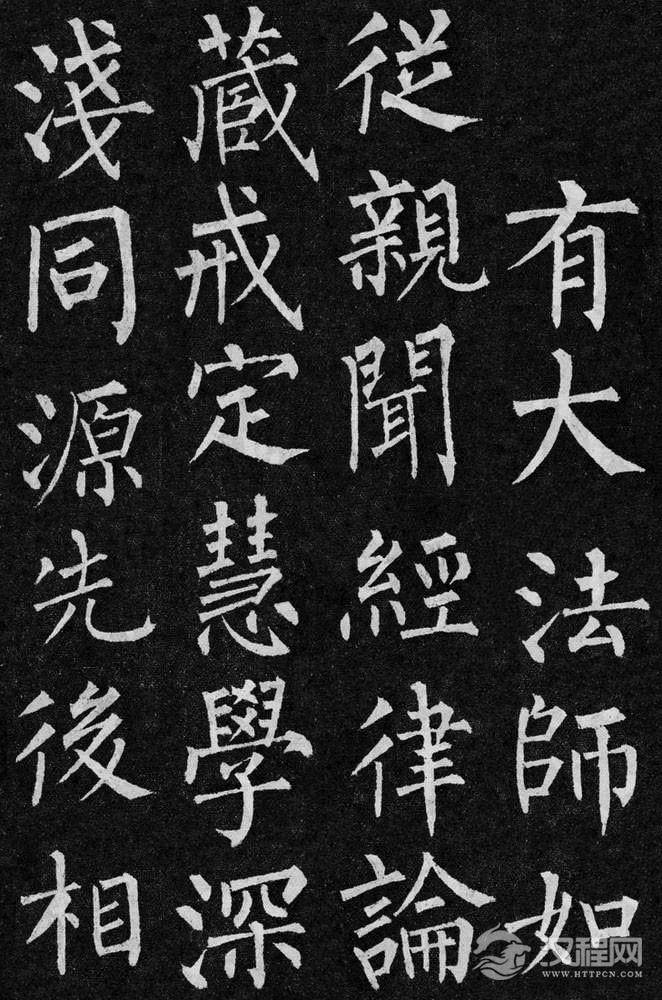 有大法師如
從親聞經律論
藏戒定慧學深
淺同源先後相
汉程网
WWW.HTTPCN.COM